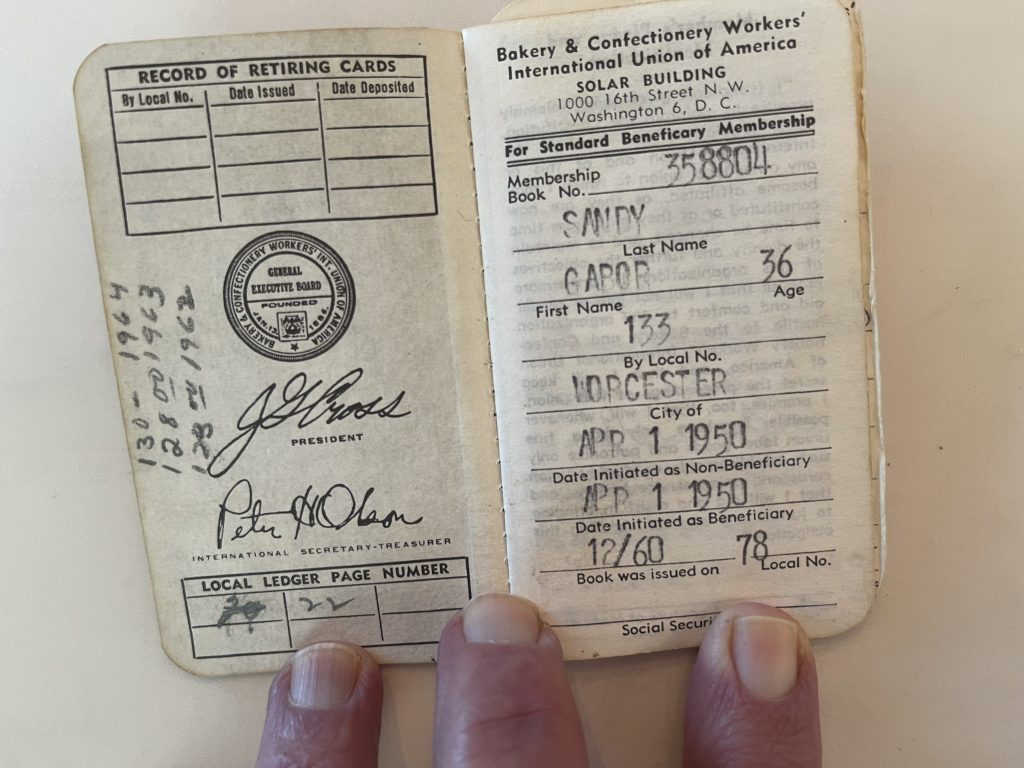 RECORD OF RETIRING CARDS
By Local No. Date Issued Date Deposited
BAKERY & CONFECTIONERY WORKERS' INT. UNION OF AMERICA
GENERAL
EXECUTIVE BOARD
FOUNDED
130 - 1964
128 00 1963
00 1962
J G Cross
PRESIDENT
Peter H Olson
INTERNATIONAL SECRETARY-TREASURER
LOCAL LEDGER PAGE NUMBER
22
Bakery & Confectionery Workers'
International Union of America
SOLAR BUILDING
1000 16th Street N. W.
Washington 6, D. C.
For Standard Beneficary Membership
Membership
Book No. 358804
SANDY
Last Name
GABOR 36
First Name Age
133
By Local No.
WORCESTER
City of
APR 1 1950
Date Initiated as Non-Beneficiary
APR 1 1950
Date Initiated as Beneficiary
12/60 78
Book was issued on Local No.
Social Securi